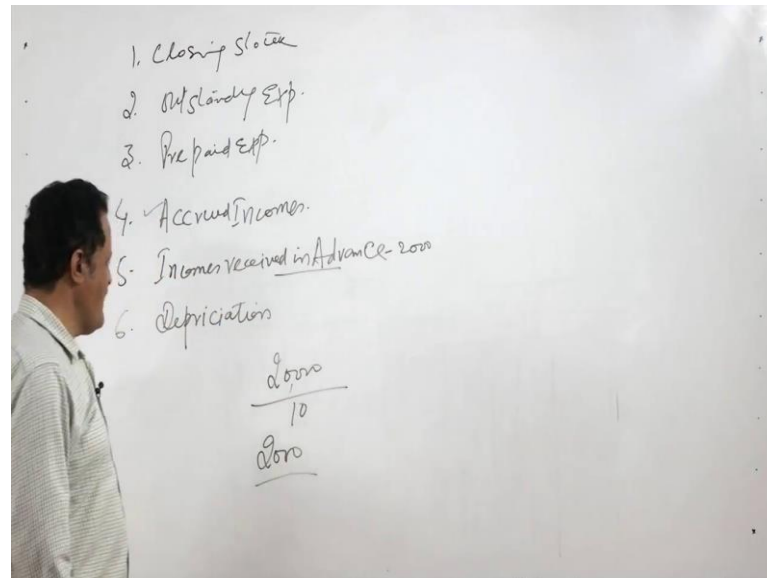 1. Closing Stock
2. Outstanding Exp.
3. Prepaid Exp.
4. Accrued Incomes.
5. Incomes received in Advance - 2000
6. Depriciation
20,000
10
2000